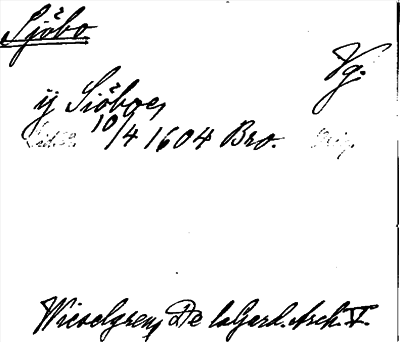 Sjöbo
Vg.
ij Siöboe,
10/4 1604 Bro.
Wieselgren, De la Gard. Arch. V.